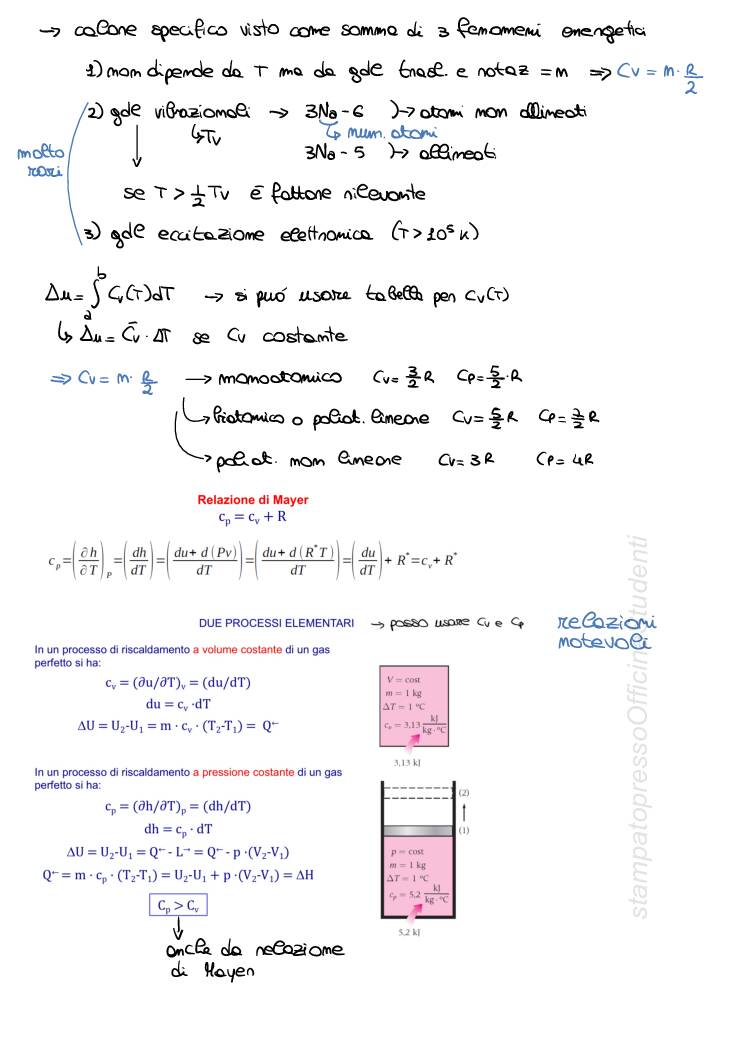 → calore specifico visto come somma di 3 fenomeni energetici
1) non dipende da T ma da gdl trasl. e rotaz = n ⇒ Cv = n · R/2
2) gdl vibrazionali → 3Na - 6 → atomi non allineati
↳ Tv ↳ num. atomi
3Na - 5 → allineati
molto rari
se T > 1/2 Tv è fattore rilevante
3) gdl eccitazione elettronica (T > 10⁵ K)
Δu = ∫ₐᵇ Cv(T)dT → si può usare tabella per Cv(T)
↳ Δu = C̄v · ΔT se Cv costante
⇒ Cv = n · R/2 → monoatomico Cv = 3/2 R Cp = 5/2 · R
→ biatomico o poliat. lineare Cv = 5/2 R Cp = 7/2 R
→ poliat. non lineare Cv = 3R Cp = 4R
Relazione di Mayer
cₚ = cᵥ + R
cₚ = (∂h/∂T)ₚ = (dh/dT) = (du + d(Pv)/dT) = (du + d(R*T)/dT) = (du/dT) + R* = cᵥ + R*
DUE PROCESSI ELEMENTARI → posso usare Cv e Cp
relazioni
notevoli
In un processo di riscaldamento a volume costante di un gas
perfetto si ha:
cᵥ = (∂u/∂T)ᵥ = (du/dT)
du = cᵥ ·dT
ΔU = U₂-U₁ = m · cᵥ · (T₂-T₁) = Q←
V = cost
m = 1 kg
ΔT = 1 °C
cᵥ = 3,13 kJ/kg·°C
3,13 kJ
In un processo di riscaldamento a pressione costante di un gas
perfetto si ha:
cₚ = (∂h/∂T)ₚ = (dh/dT)
dh = cₚ · dT
ΔU = U₂-U₁ = Q← - L→ = Q← - p ·(V₂-V₁)
Q← = m · cₚ · (T₂-T₁) = U₂-U₁ + p ·(V₂-V₁) = ΔH
Cₚ > Cᵥ
(2)
(1)
p = cost
m = 1 kg
ΔT = 1 °C
cₚ = 5,2 kJ/kg·°C
5,2 kJ
anche da relazione
di Mayer